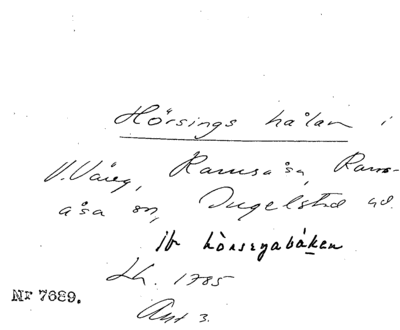 Hörsings hålan i
V. Väng, Ramsåsa, Rams-
åsa sn, Ingelstad hd.
jfr hörsryabåken
Lh. 1785
Akt 3.
Nr 7689.